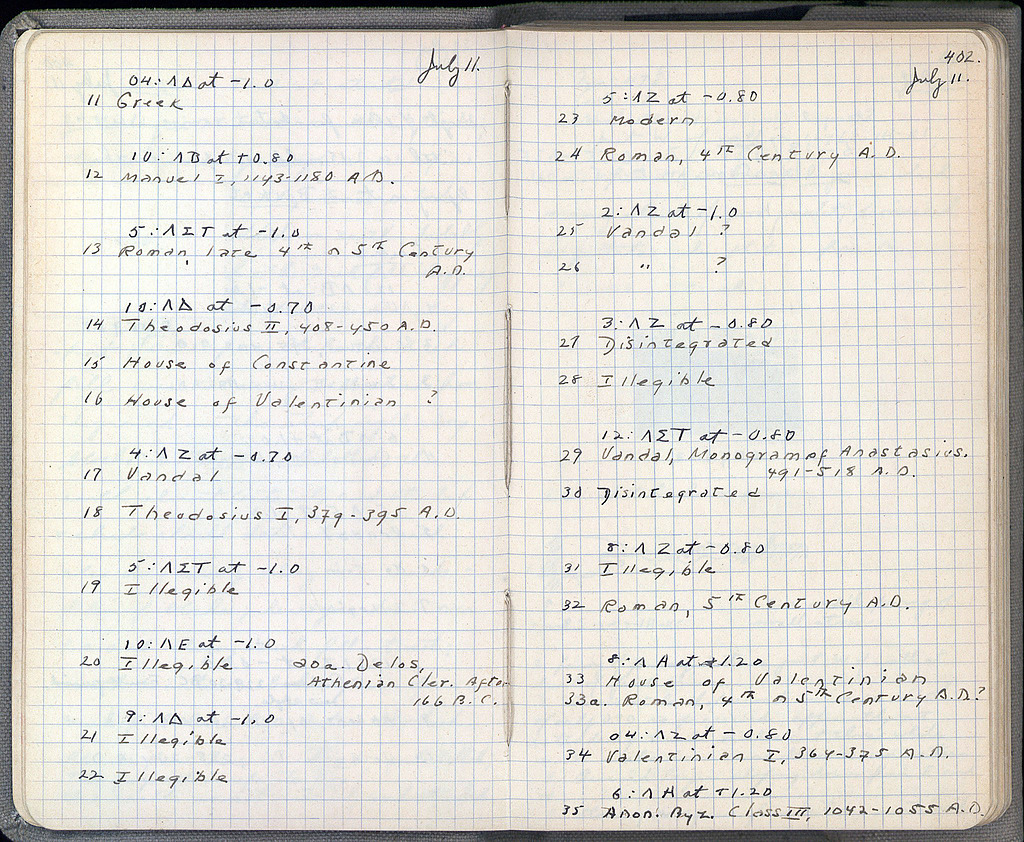 July 11.
04: ΛΔ at -1.0
11 Greek
10: ΛΒ at +0.80
12 Manuel I, 1143-1180 A.D.
5: ΛΣΤ at -1.0
13 Roman, late 4th or 5th Century
A.D.
10: ΛΔ at -0.70
14 Theodosius II, 408-450 A.D.
15 House of Constantine
16 House of Valentinian ?
4: ΛΖ at -0.70
17 Vandal
18 Theodosius I, 379-395 A.D.
5: ΛΣΤ at -1.0
19 Illegible
10: ΛΕ at -1.0
20 Illegible 20a. Delos,
Athenian Cler. After
166 B.C.
9: ΛΔ at -1.0
21 Illegible
22 Illegible
402.
July 11.
5: ΛΖ at -0.80
23 Modern
24 Roman, 4TH Century A.D.
2: ΛΖ at -1.0
25 Vandal ?
26 " ?
3: ΛΖ at -0.80
27 Disintegrated
28 Illegible
12: ΛΣΤ at -0.80
29 Vandal, Monogram of Anastasius.
491-518 A.D.
30 Disintegrated
8: ΛΖ at -0.80
31 Illegible
32 Roman, 5TH Century A.D.
8: ΛΗ at +1.20
33 House of Valentinian
33a. Roman, 4th or 5th Century A.D.?
04: ΛΖ at -0.80
34 Valentinian I, 364-375 A.D.
6: ΛΗ at +1.20
35 Anon. Byz. Class III, 1042-1055 A.D.